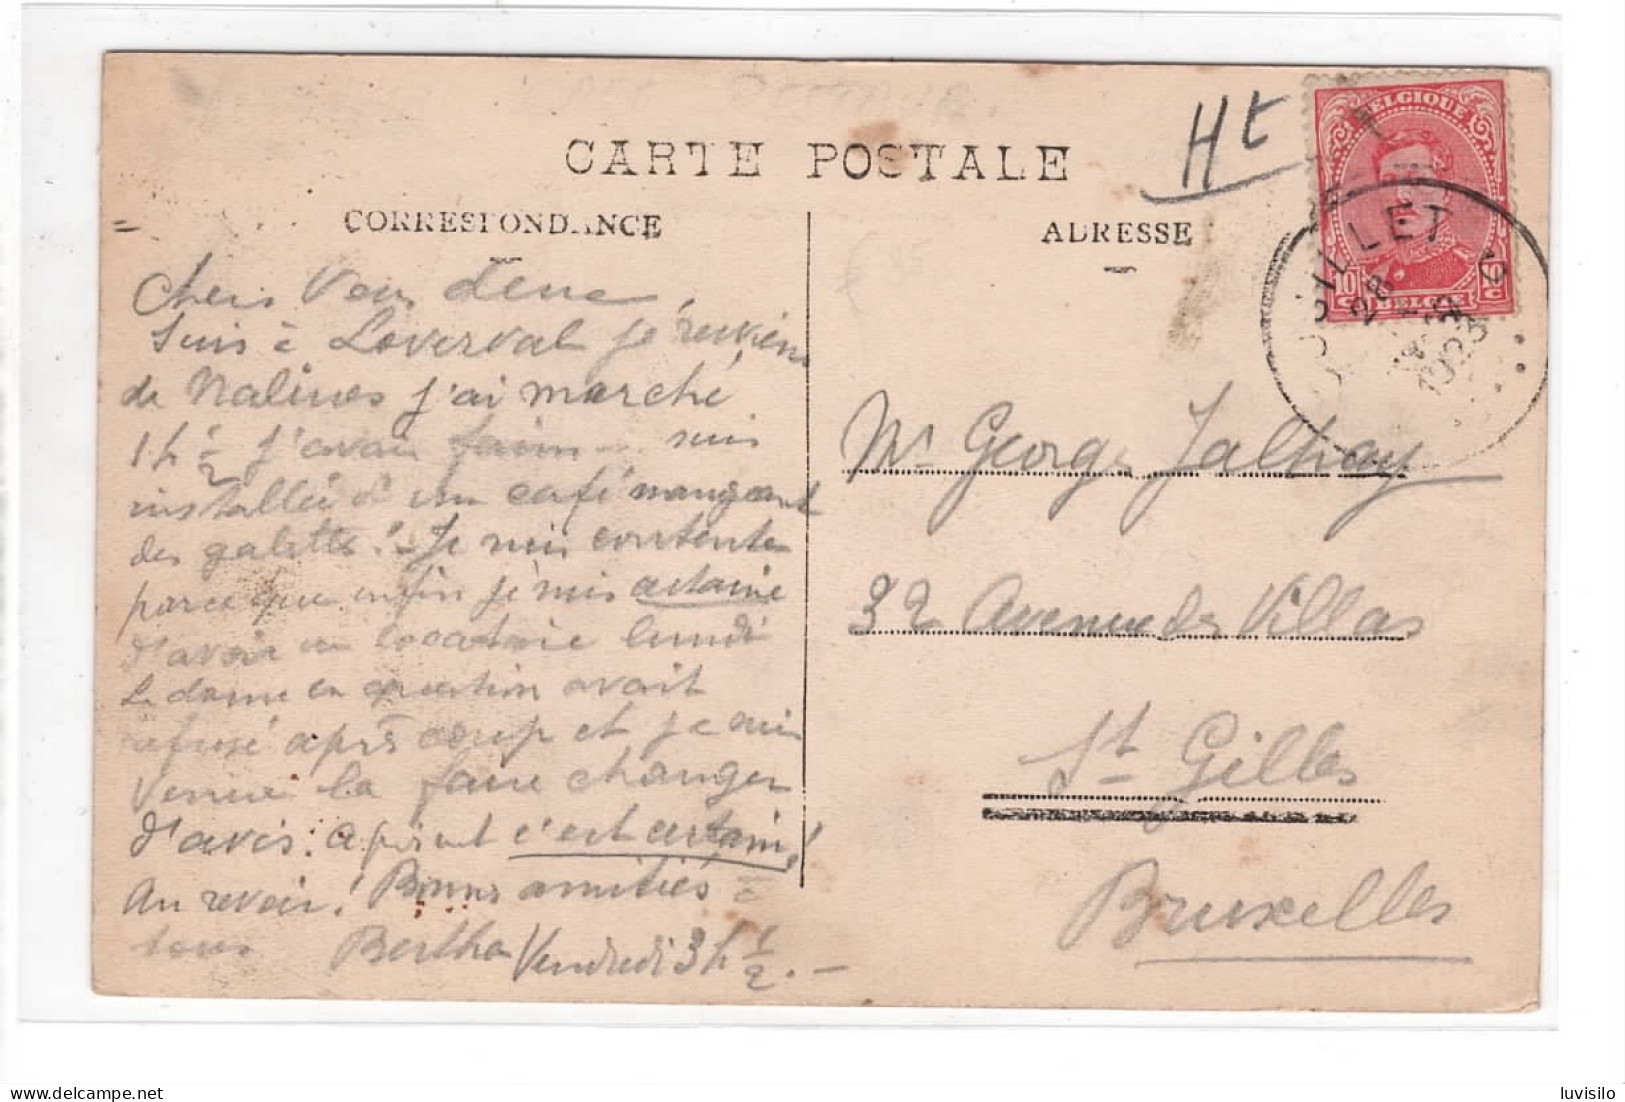 CARTE POSTALE
Ht
CORRESPONDANCE
ADRESSE
BELGIQUE
10 C C
BELGIE
COUILLET
28
1923
Chers Vous
Suis à Loverval je reviens
de Nalines j'ai marché
1h ½ j'avais faim - suis
installée ds un café mangeant
des galettes! - Je suis contente
parce que enfin je suis certaine
d'avoir un locataire lundi
La dame en question avait
refusé après coup et je suis
venue la faire changer
d'avis. à présent c'est certain!
Au revoir! Bonnes amitiés à
tous Bertha Vendredi 3h ½. -
Mr George Jalhay
32 Avenue des Villas
St Gilles
Bruxelles
luvisilo